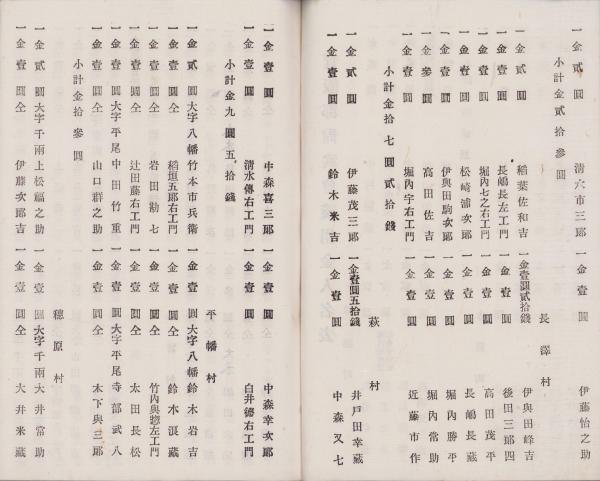 一金貳圓　清六市三郎　一金壹圓　伊藤怡之助
小計金貳拾參圓
長澤村
一金貳圓　稻葉佐和吉　一金壹圓貳拾錢　伊與田峰吉
一金壹圓　長嶋長左工門　一金壹圓　後田三郎四
一金壹圓　堀内七之右工門　一金壹圓　高田茂平
一金壹圓　松崎浦次郎　一金壹圓　長嶋長藏
一金壹圓　伊與田駒次郎　一金壹圓　堀内勝平
一金參圓　高田佐吉　一金壹圓　堀内常助
一金壹圓　堀内宇右工門　一金壹圓　近藤市作
小計金拾七圓貳拾錢
萩村
一金貳圓　伊藤茂三郎　一金壹圓五拾錢　井戸田幸藏
一金壹圓　鈴木米吉　一金壹圓　中森又七
一金壹圓　中森喜三郎　一金壹圓　中森幸次郎
一金壹圓　淸水傳右工門　一金壹圓　白井德右工門
小計金九圓五拾錢
平幡村
一金貳圓大字八幡竹本市兵衛　一金壹圓大字八幡鈴木岩吉
一金壹圓仝　稻垣五郎右工門　一金壹圓仝　鈴木浪藏
一金壹圓仝　岩田勘七　一金壹圓仝　竹内與惣左工門
一金壹圓仝　辻田藤右工門　一金壹圓仝　太田長松
一金壹圓大字平尾中田竹重　一金壹圓大字平尾寺部武八
一金壹圓仝　山口群之助　一金壹圓仝　木下與三郎
小計金拾參圓
穗原村
一金貳圓大字千兩上松福之助　一金壹圓大字千兩大井常助
一金壹圓仝　伊藤次郎吉　一金壹圓仝　大井米藏